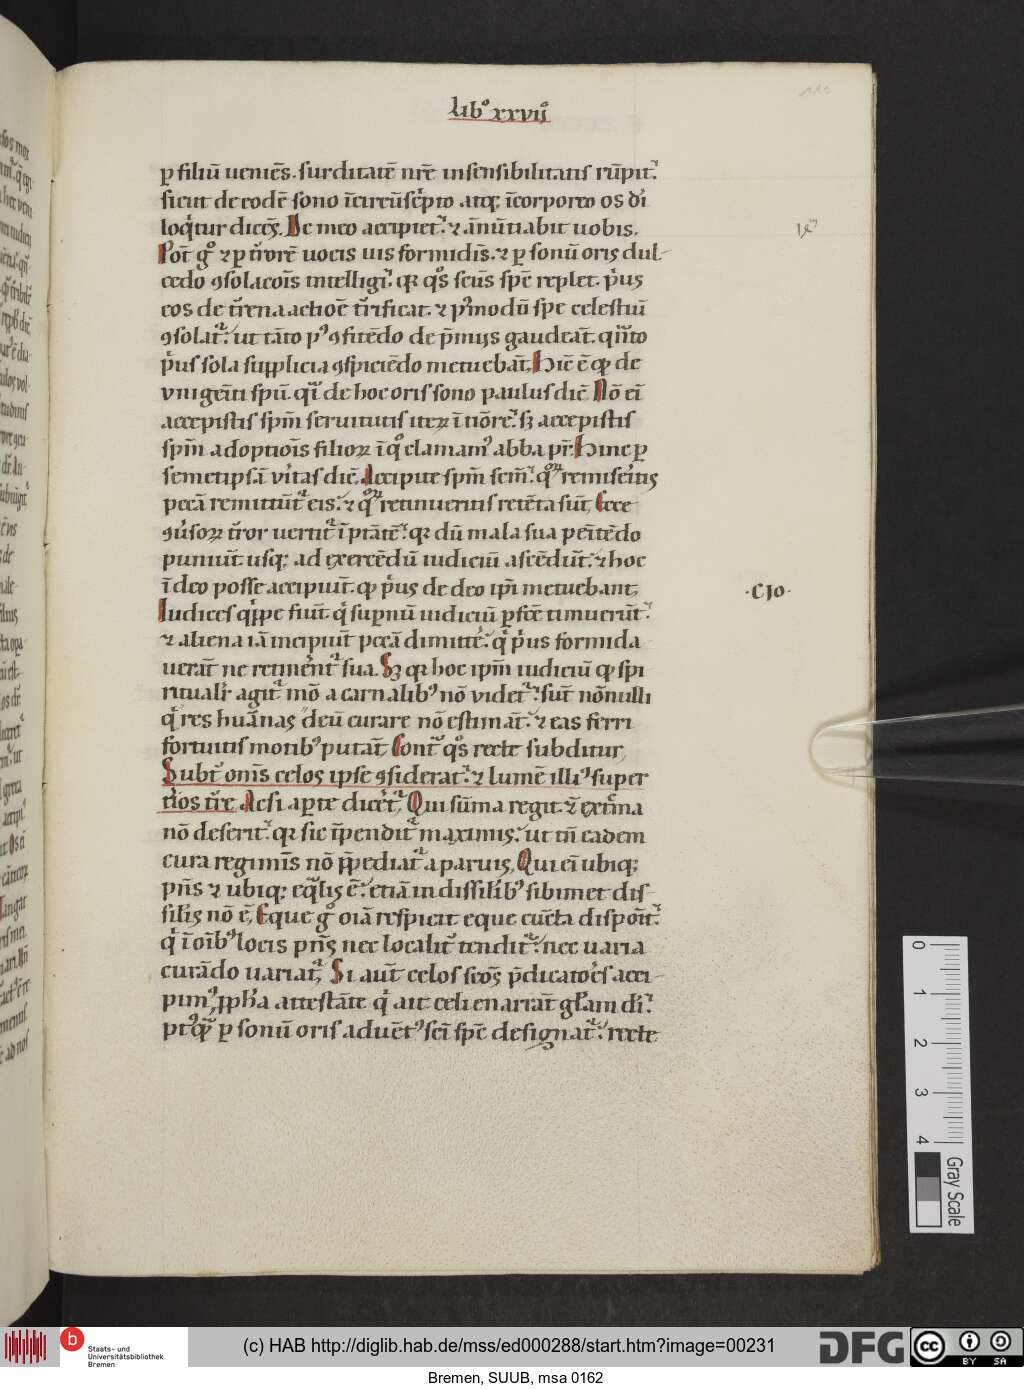 lib⁰ xxvii⁰
ꝑ filiū ueniēs. surditatē nr̄e insensibilitatis rūpit.
sicut de eodē sono īcircūsc̾pto atq; īcorporeo os dī
loq̾tur dicēs. De meo accipiet. ⁊ ānūtiabit uobis.
Pot̄ gͦ ⁊ ꝑ t̾rorē uocis uis formidīs. ⁊ ꝑ sonū oris dul-
cedo ꝯsolacōis intelligi. qꝛ q̊s scūs spē replet. p̾us
eos de t̾rena actiōe t̾rificat. ⁊ pꝰmodū spe celestiū
ꝯsolat̾. ut tāto pꝰ ꝯfitēdo de p̄mijs gaudeāt. q̾nto
p̾us sola supplicia ꝯspiciēdo metuebāt. Hīc ē qͥ de
vnigēiti spū. q̾i de hoc oris sono paulus dīc. Nō eī
accepistis spm̄ seruitutis iteꝝ ī tiōre. sꝫ accepistis
spm̄ adoptiōis filioꝝ ī qͦ clamamꝰ abba pr̄. Hinc ꝑ
semetipsā vitas dīc. Accipite spm̄ scm̄. qͦꝝ remiseitis
pccā remittūt̾ eis. ⁊ qͦꝝ retinueritis retēta sūt. Ecce
ꝯuersoꝝ t̾ror uertit̾ ī ptātē. qꝛ dū mala sua peītēdo
puniūt. usq; ad exercēdū iudiciū ascēdūt. ⁊ hoc
ī deo posse accipiūt. qͥ p̾us de deo ipī metuebant.
·CIO·
Iudices q̾ppe fiūt q̾ suꝑnū iudiciū ꝑfcē timuerūt.
⁊ aliena iā incipiūt pccā dimitte̾. q̾ p̾us formida
uerāt ne retinēnt̾ sua. Sꝫ qꝛ hoc ipm̄ iudiciū qͥ spi
ritualit̾ agit̾ mō a carnalibꝰ nō videt̾. sūt nōnulli
q̾ res huānas deū curare nō estimāt. ⁊ eas ferri
fortuitis motibꝰ putāt. Cont̾ q̊s recte subditur
Subt̾ omīs celos ipse ꝯsiderat. ⁊ lumē illiꝰ super
tīos t̾re. Acsi aperte dicēt̾. Qui sūma regit. ⁊ ext̾ma
nō deserit. qꝛ sic īpendit̾ maximis. ut tn̄ eadem
cura regimīs nō p̄pediat̾ a paruis. Qui eī ubiq;
pn̄s ⁊ ubiq; eq̾lis ē. etiā in dissil̾ibꝰ sibimet dis-
sil̾is nō ē. Eque gͦ oīa respicit eque cūcta dispōit.
q̾ ī oībꝰ locis pn̄s nec localit̾ tendit̾. nec uaria
curādo uariat̾. Si aut̄ celos scōs p̄dicatores acci-
pimꝰ ꝓpħa attestāte q̾ ait celi enarrāt gl̄am dī.
ptͦqͣ ꝑ sonū oris aduētꝰ scī spc̄ designat̾. recte
Gray Scale
0 1 2 3 4
Staats- und
Universitätsbibliothek
Bremen
(c) HAB http://diglib.hab.de/mss/ed000288/start.htm?image=00231
DFG
CC BY SA
Bremen, SUUB, msa 0162